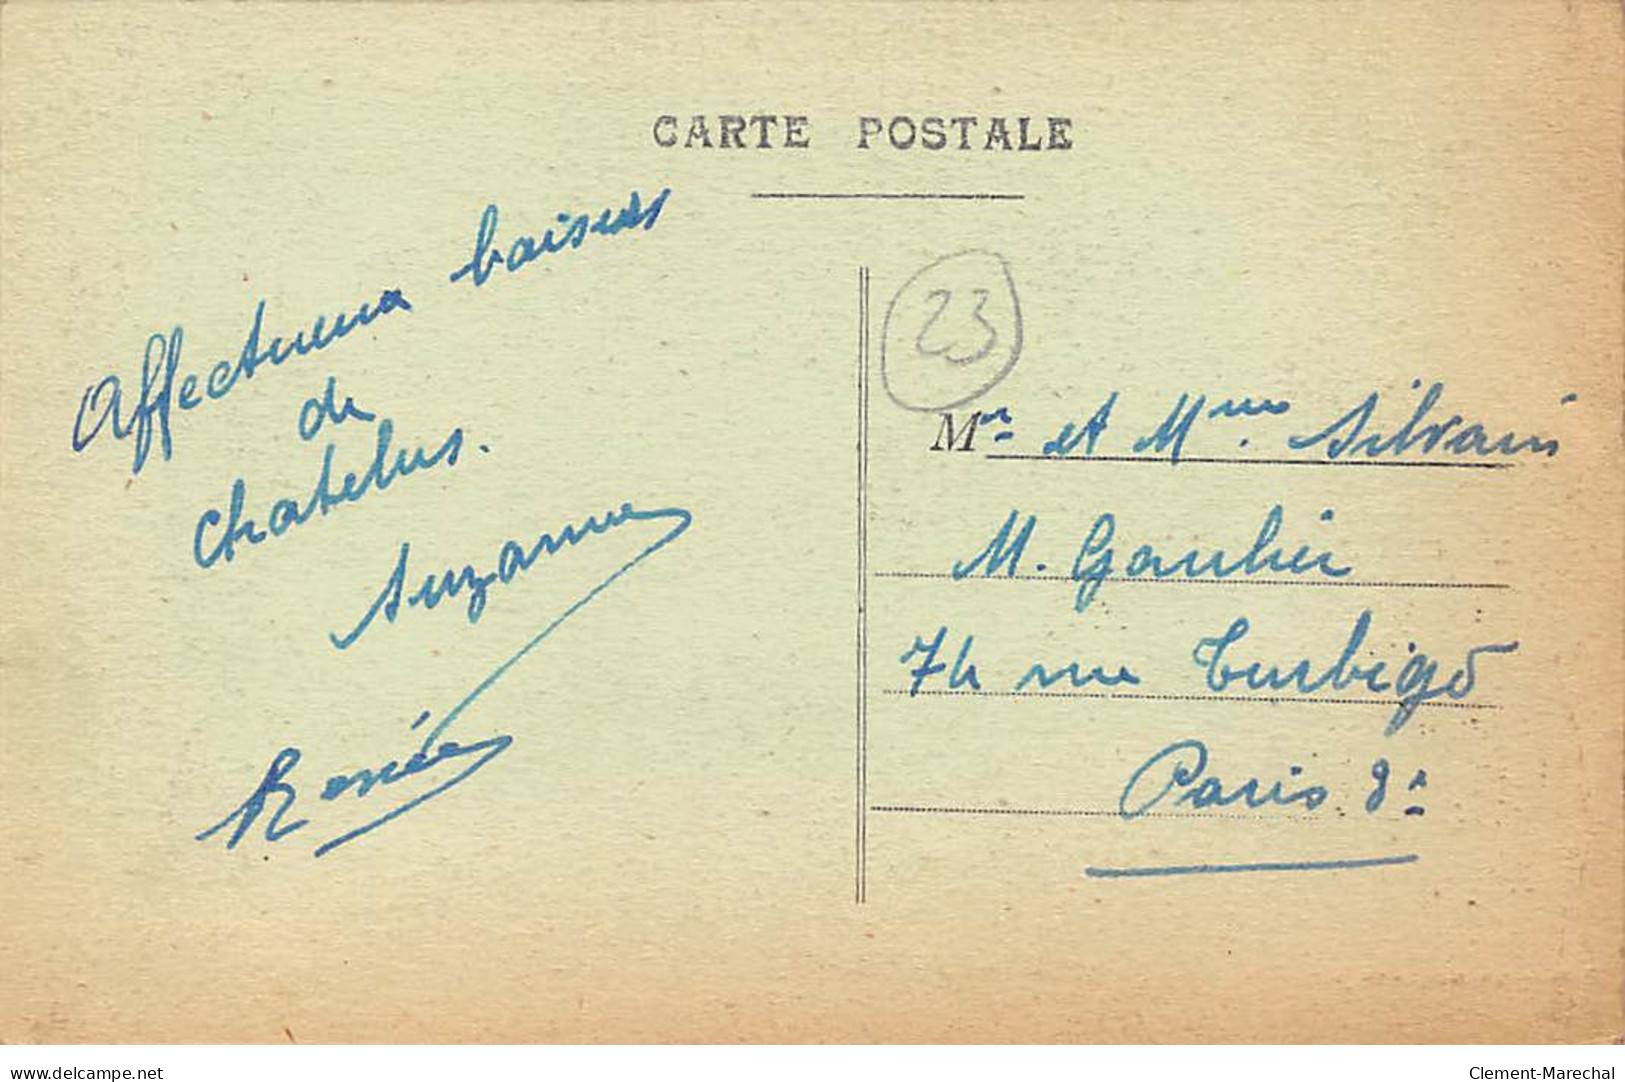 CARTE POSTALE
Affectueux baisers
de
Chatelus.
Suzanne
Renée
23
Mr et Mme Silvain
M. Gaulier
74 rue Turbigo
Paris 3e
www.delcampe.net
Clement-Marechal